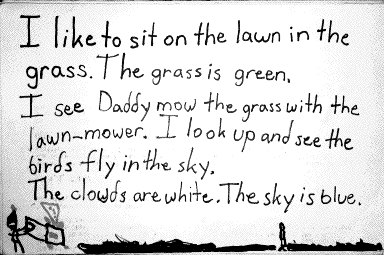 I like to sit on the lawn in the
grass. The grass is green.
I see Daddy mow the grass with the
lawn-mower. I look up and see the
birds fly in the sky.
The clowds are white. The sky is blue.